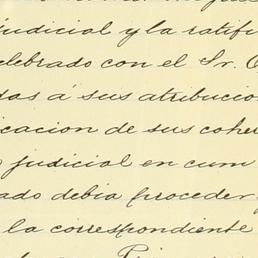 judicial y la ratifi
elebrado con el Sr.
das á sus atribucion
icacion de sus cohe
judicial en cum
ado debia proceder
la correspondiente